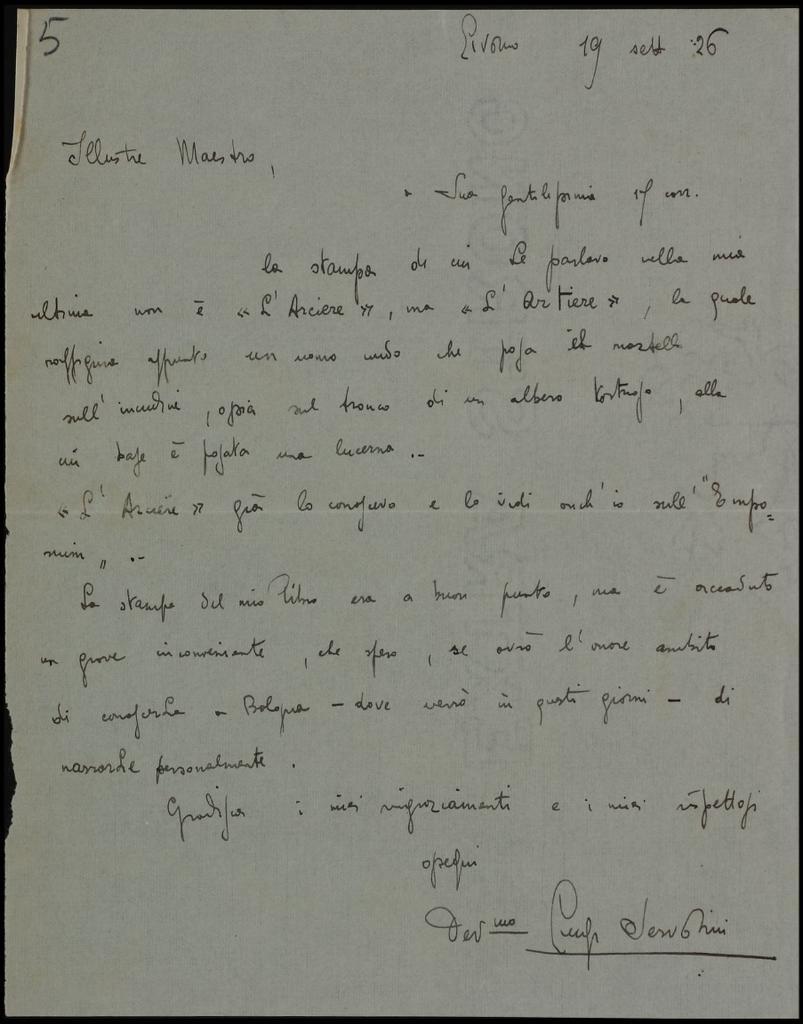 5
Livorno 19 sett 26
Illustre Maestro,
a Sua gentilissima 17 corr.
la stampa di cui Le parlavo nella mia
ultima non è « L'Arciere », ma « L'Artiere », la quale
raffigura appunto un uomo nudo che posa il martello
sull'incudine, ossia sul tronco di un albero tortuoso, alla
cui base è posata una lucerna.-
« L'Arciere » già lo conoscevo e lo vidi anch'io sull'"Empo=
rium„.-
La stampa del mio libro era a buon punto, ma è accaduto
un grave inconveniente, che spero, se avrò l'onore ambito
di conoscerLa a Bologna - dove verrò in questi giorni - di
narrarLe personalmente.
Gradisca i miei ringraziamenti e i miei rispettosi
ossequi
Dev.mo Luigi Servolini